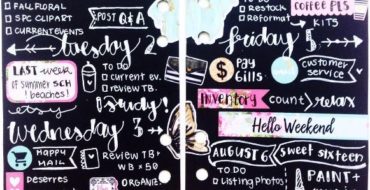 FALL FLORAL
SPC CLIPART
CURRENT EVENTS
POST Q&A
tuesday 2
LAST week
of summer SCH
(beaches!)
TO DO
current ev.
review TB.
Study!
etsy
wednesday 3
HAPPY
MAIL
REVIEW TB+
WB x50
deserres
ORGANIZE
TO DO
RESTOCK
Reformat
coffee PLS
KITS
friday 5
$ Pay
Bills
customer
service
Inventory count relax
Hello Weekend
AUGUST 6 sweet sixteen
TO DO
Listing photos
PAINT+